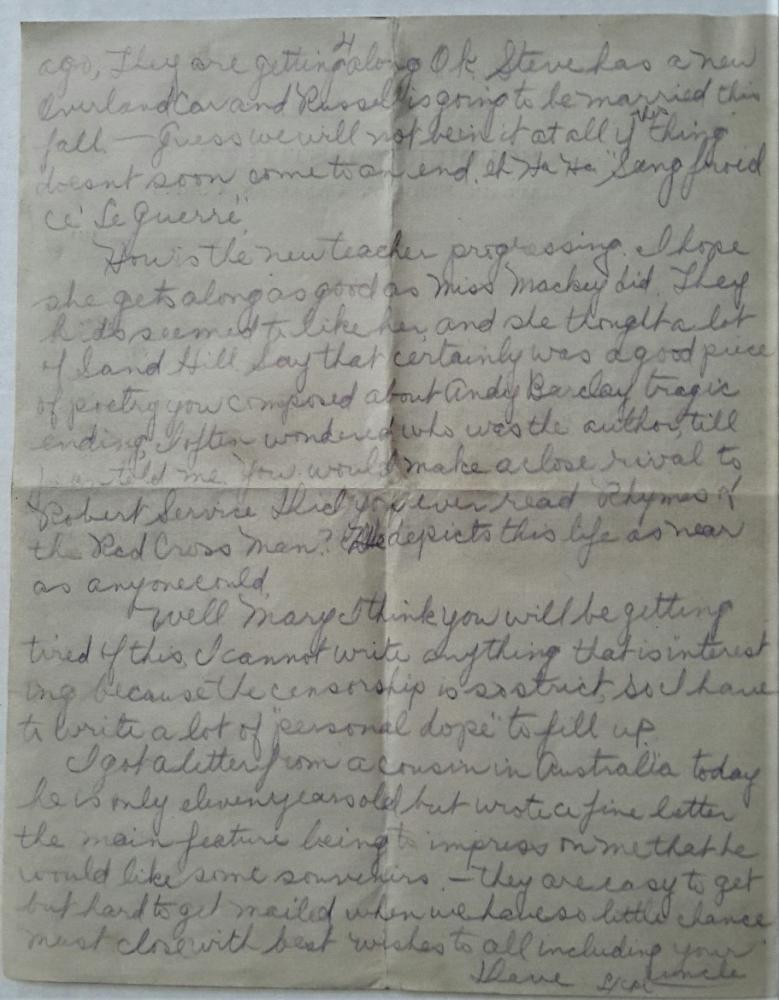 4
ago, They are getting along O.k. Steve has a new
Overland Car and Russell is going to be married this
fall. — Guess we will not be in it at all if this thing
doesnt soon come to an end, eh Ha Ha "Sang froid
ce' Le Guerre"
How is the new teacher progressing. I hope
she gets along as good as Miss Mackey did. They
kids seemed to like her, and she thought a lot
of Sand Hill. Say that certainly was a good piece
of poetry you composed about Andy Barclay tragic
ending, I often wondered who was the author, till
told me. You would make a close rival to
Robert Service. Did you ever read "Rhymes of
the Red Cross Man"? He depicts this life as near
as anyone could.
Well Mary I think you will be getting
tired of this, I cannot write anything that is interest
ing because the censorship is so strict, so I have
to write a lot of "personal dope" to fill up.
I got a letter from a cousin in Australia today
he is only eleven years old but wrote a fine letter
the main feature being to impress on me that he
would like some souvenirs. — They are easy to get
but hard to get mailed when we have so little chance
must close with best wishes to all including your
Dave uncle